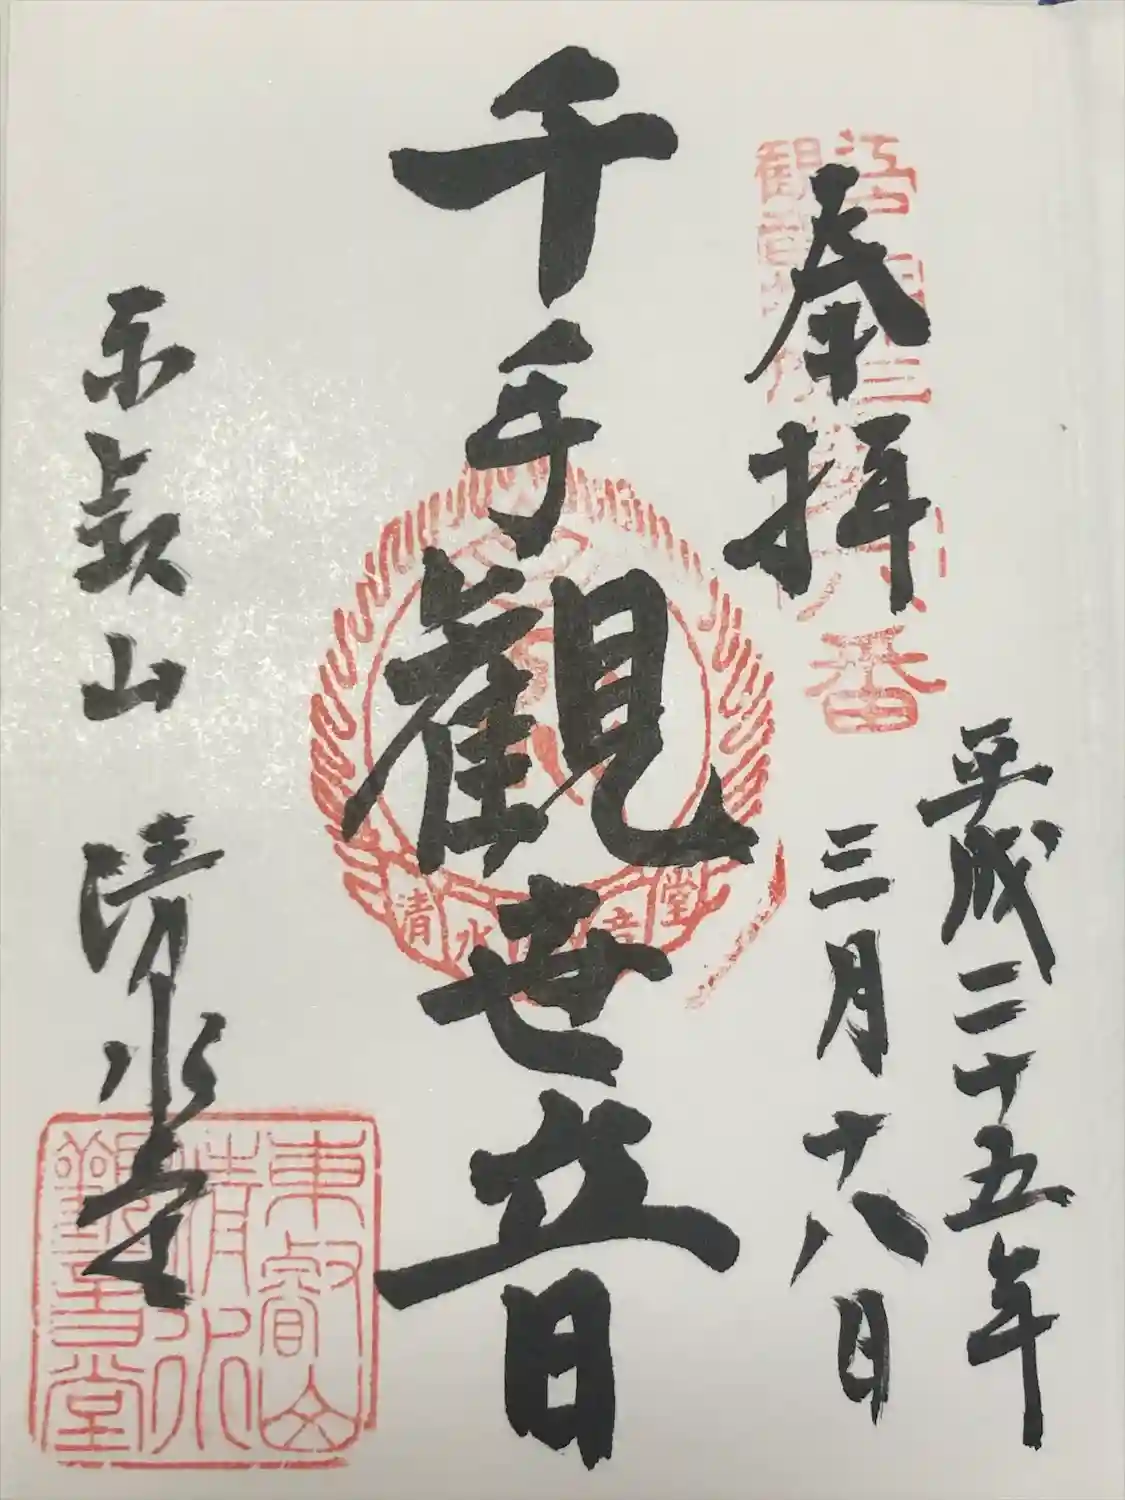 奉拝
平成二十五年
三月十八日
千手観世音
東叡山 清水堂
江戸三十三
観音札所
第六番
清水観音堂
東叡山
清水
観音堂